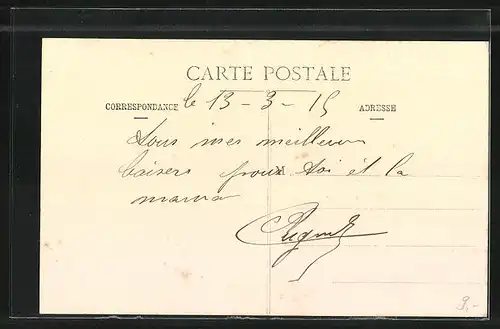 CARTE POSTALE
CORRESPONDANCE
ADRESSE
le 13-3-15
Tous mes meilleurs
baisers pour toi et la
mama
M
9,-